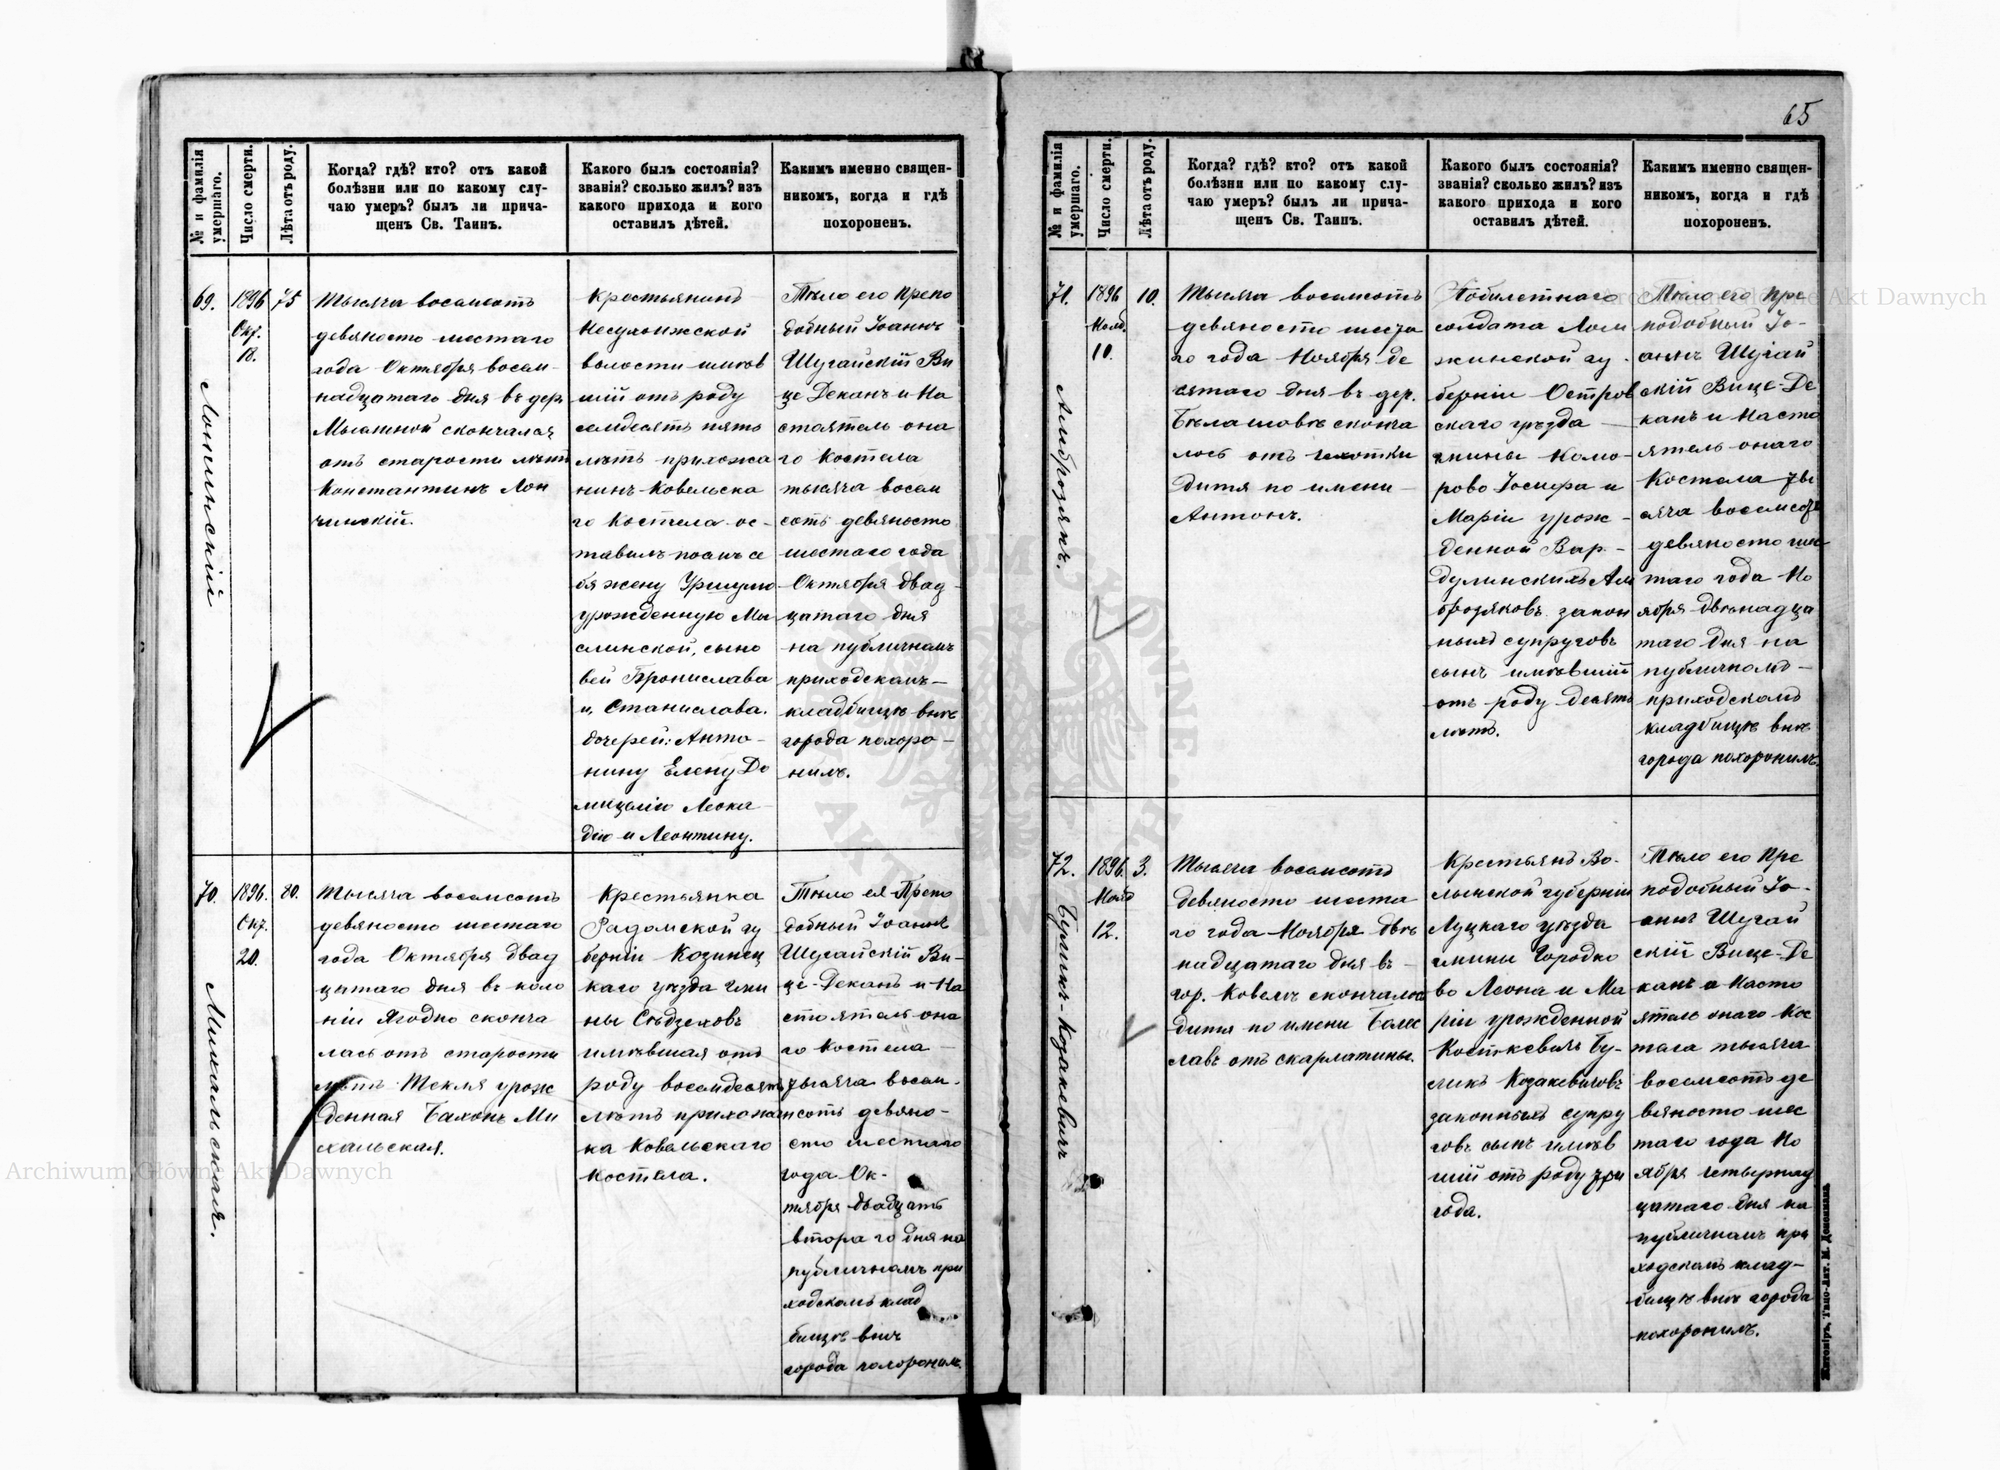 65
№ и фамилія умершаго.
Число смерти.
Лѣта отъ роду.
Когда? гдѣ? кто? отъ какой
болѣзни или по какому слу-
чаю умеръ? былъ ли прича-
щенъ Св. Таинъ.
Какого былъ состоянія?
званія? сколько жилъ? изъ
какого прихода и кого
оставилъ дѣтей.
Какимъ именно священ-
никомъ, когда и гдѣ
похороненъ.
69.
Лончинскій
1896
Окт.
18.
75
Тысяча восемсотъ
девяносто шестаго
года Октября восем-
надцатаго дня въ дер.
скончался
отъ старости лѣтъ
Константинъ Лон
чинскій.
Крестьянинъ
Несухоижской
волости имѣв
шій отъ роду
семдесятъ пять
лѣтъ прихожа
нинъ Ковельска
го Костела ос-
тавилъ послѣ се
бя жену Уршулю
урожденную Мы
слинской, сыно
вей Бронислава
и Станислава.
дочерей: Анто-
нину Елену До
мицелію Леока-
дію и Леонтину.
Тѣло его Препо
добный Іоаннъ
Шугайскій Ви
це Деканъ и На
стоятель она
го Костела
тысяча восем
сотъ девяносто
шестаго года
Октября двад-
цатаго дня
на публичномъ
приходскомъ-
кладбищѣ внѣ
города похоро-
нилъ.
70.
Михальская.
1896.
Окт.
20.
80.
Тысяча восемсотъ
девяносто шестаго
года Октября двад
цатаго дня въ коло
ніи Ягодно сконча
лась отъ старости
лѣтъ Текля урож
денная Балонъ Ми
хальская.
Крестьянка
Радомской гу
берніи Козинец
каго уѣзда гми
ны Сѣдзеховъ
имѣвшая отъ
роду восемдесятъ
лѣтъ прихожан
ка Ковельскаго
Костела.
Тѣло ея Препо
добный Іоаннъ
Шугайскій Ви-
це-Деканъ и На
стоятель она
го Костела
тысяча восем-
сотъ девяно-
сто шестаго
года Ок-
тября двадцать
втораго дня на
публичномъ при
ходскомъ клад
бищѣ внѣ
города похоронилъ.
№ и фамилія умершаго.
Число смерти.
Лѣта отъ роду.
Когда? гдѣ? кто? отъ какой
болѣзни или по какому слу-
чаю умеръ? былъ ли прича-
щенъ Св. Таинъ.
Какого былъ состоянія?
званія? сколько жилъ? изъ
какого прихода и кого
оставилъ дѣтей.
Какимъ именно священ-
никомъ, когда и гдѣ
похороненъ.
71.
Амброзякъ.
1896
Нояб.
10.
10.
Тысяча восемсотъ
девяносто шеста
го года Ноября де
сятаго дня въ дер.
Бѣлашовѣ сконча
лось отъ чахотки
дитя по имени-
Антонъ.
Побилетнаго
солдата Лом
жинской гу-
берніи Остров
скаго уѣзда-
гмины Комо-
рово Іосифа и
Маріи урож-
денной Вар-
дулинскихъ Ам
брозяковъ закон
ныхъ супруговъ
сынъ имѣвшій
отъ роду десять
лѣтъ.
Тѣло его Пре-
подобный Іо-
аннъ Шугай
скій Вице-Де
канъ и Насто
ятель онаго
Костела ты
сяча восемсотъ
девяносто шес-
таго года Но
ября двѣнадца
таго дня на
публичномъ-
приходскомъ
кладбищѣ внѣ
города похоронилъ.
72.
Буликъ-Козакевичъ
1896.
Нояб
12.
3.
Тысяча восемсотъ
девяносто шеста
го года Ноября двѣ
надцатаго дня въ-
гор. Ковелѣ скончалось
дитя по имени Болес
лавъ отъ скарлатины.
Крестьянъ Во-
лынской губерніи
Луцкаго уѣзда
гмины Городко
во Леона и Ма
ріи урожденной
Косткевичъ Бу-
ликъ Козакевичовъ
законныхъ супру
говъ сынъ имѣв
шій отъ роду три
года.
Тѣло его Пре
подобный Іо-
аннъ Шугай
скій Вице-Де
канъ и Насто
ятель онаго Кос
тела тысяча
восемсотъ де
вяносто шес
таго года Но
ября четырнад
цатаго дня на
публичномъ при
ходскомъ клад-
бищѣ внѣ города
похоронилъ.
Житоміръ, Типо-Лит. М. Дененмана
Archiwum Główne Akt Dawnych
Archiwum Główne Akt Dawnych